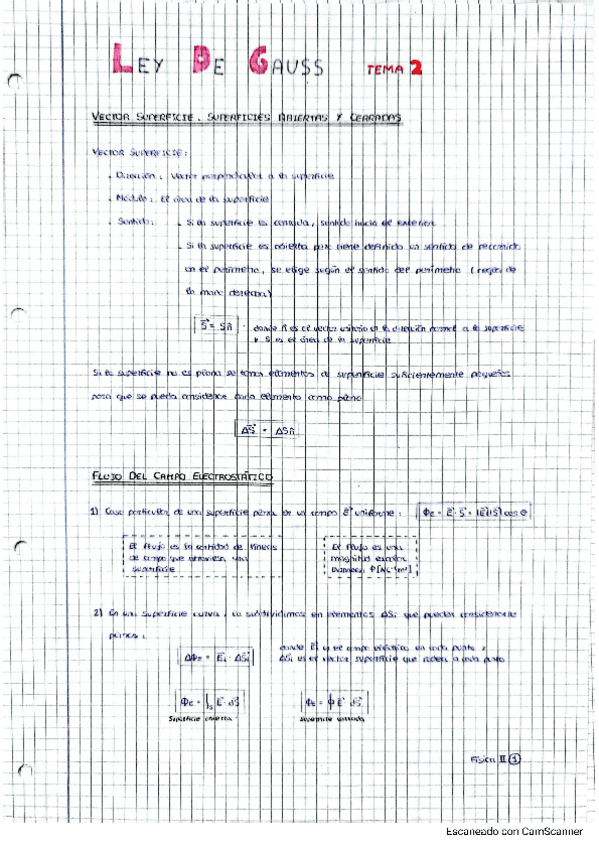 LEY DE GAUSS TEMA 2
VECTOR SUPERFICIE. SUPERFICIES ABIERTAS Y CERRADAS
VECTOR SUPERFICIE:
. Dirección: Vector perpendicular a la superficie
. Módulo: El área de la superficie
. Sentido: - Si la superficie es cerrada, sentido hacia el exterior
- Si la superficie es abierta pero tiene definido un sentido de recorrido
en el perímetro, se elige según el sentido del perímetro (regla de
la mano derecha)
S⃗ = S n̂ . donde n̂ es el vector unitario en la dirección normal a la superficie
y S es el área de la superficie
Si la superficie no es plana se toman elementos de superficie suficientemente pequeños
para que se pueda considerar cada elemento como plano
ΔS⃗ = ΔS n̂
FLUJO DEL CAMPO ELECTROSTÁTICO
1) Caso particular de una superficie plana en un campo E⃗ uniforme: ΦE = E⃗ · S⃗ = |E⃗||S⃗| cos θ
El flujo es la cantidad de líneas
de campo que atraviesan una
superficie
El flujo es una
magnitud escalar
2) En una superficie curva, la subdividimos en elementos ΔSi que puedan considerarse
planos:
ΔΦE = E⃗i · ΔS⃗i donde E⃗i es el campo eléctrico en cada punto y
ΔSi es el vector superficie que rodea a cada punto
ΦE = ∫s E⃗ · dS⃗
Superficie abierta
ΦE = ∮ E⃗ dS⃗
Superficie cerrada
Física II 1
Escaneado con CamScanner